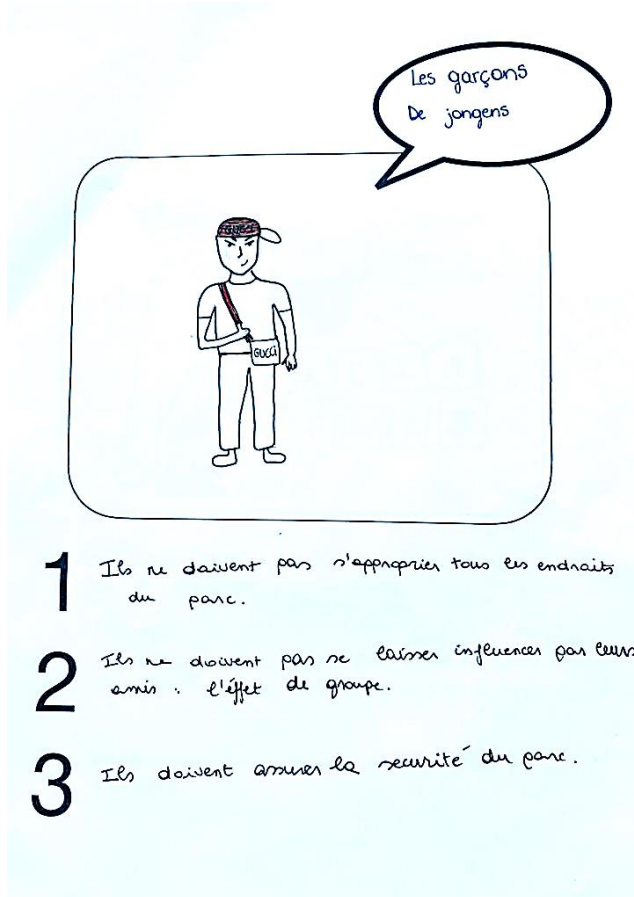 Les garçons
De jongens
GUCCI
GUCCI
1 Ils ne doivent pas s'approprier tous les endroits
du parc.
2 Ils ne doivent pas se laisser influencer par leurs
amis : l'éffet de groupe.
3 Ils doivent assurer la securité du parc.